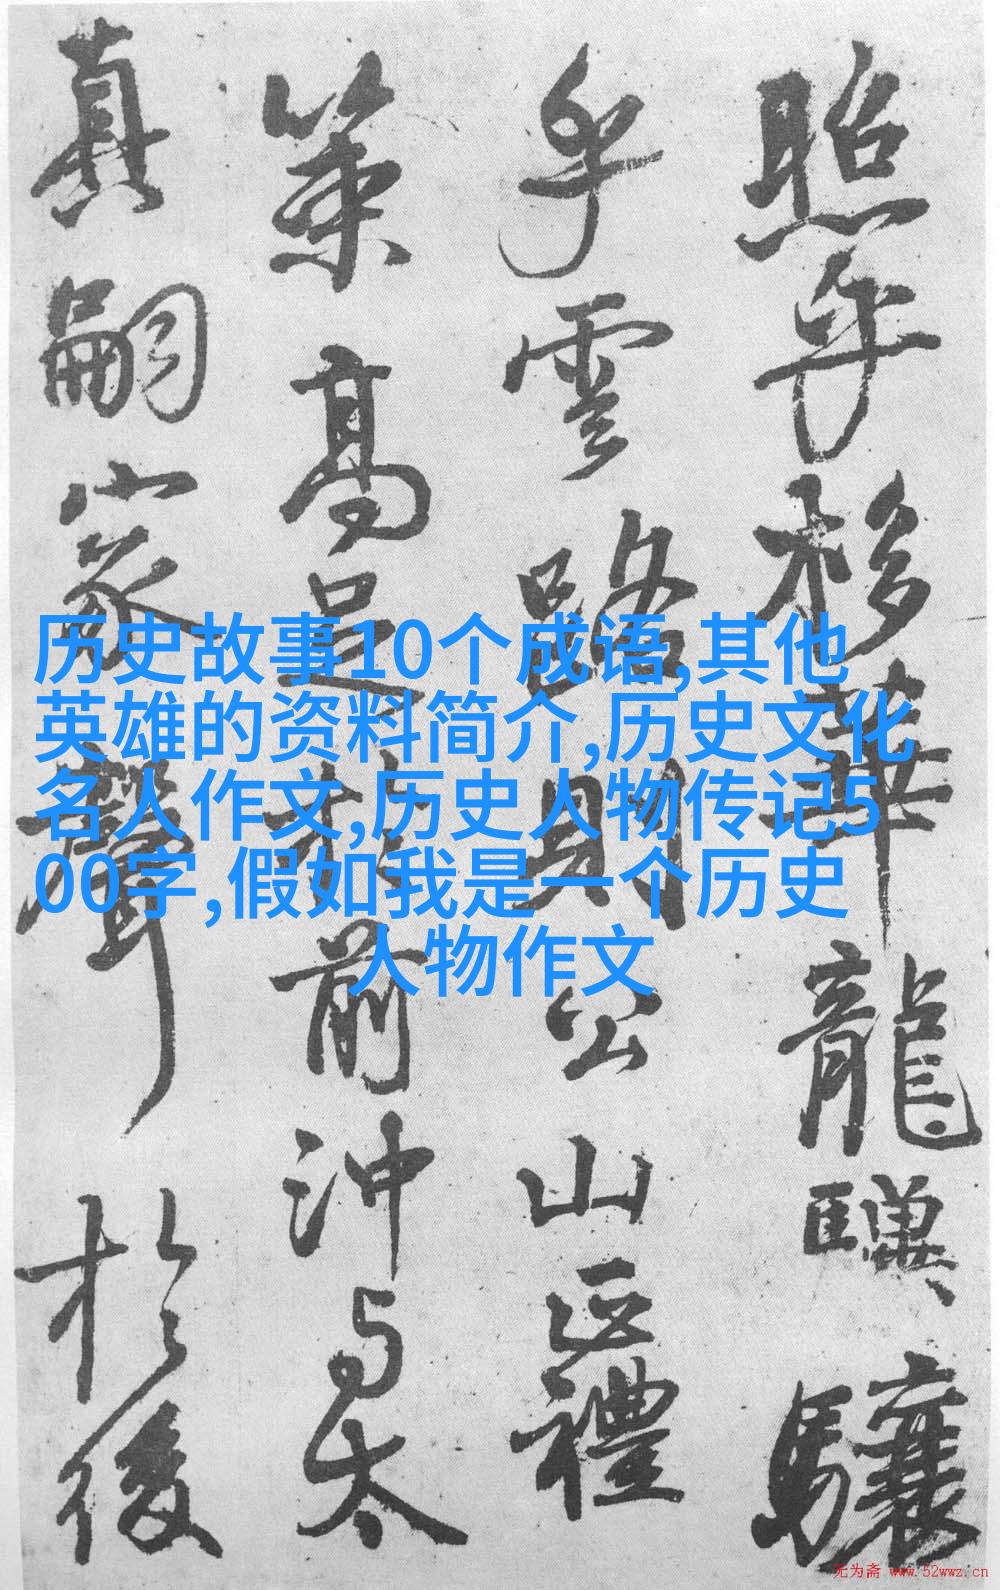 照乎移華龍驥驤
乎雲路則公山正禮
策高足於前沖与太
真嗣家聲於後
历史故事10个成语,其他
英雄的资料简介,历史文化
名人作文,历史人物传记5
00字,假如我是一个历史
人物作文
无为斋 www.52wwz.cn